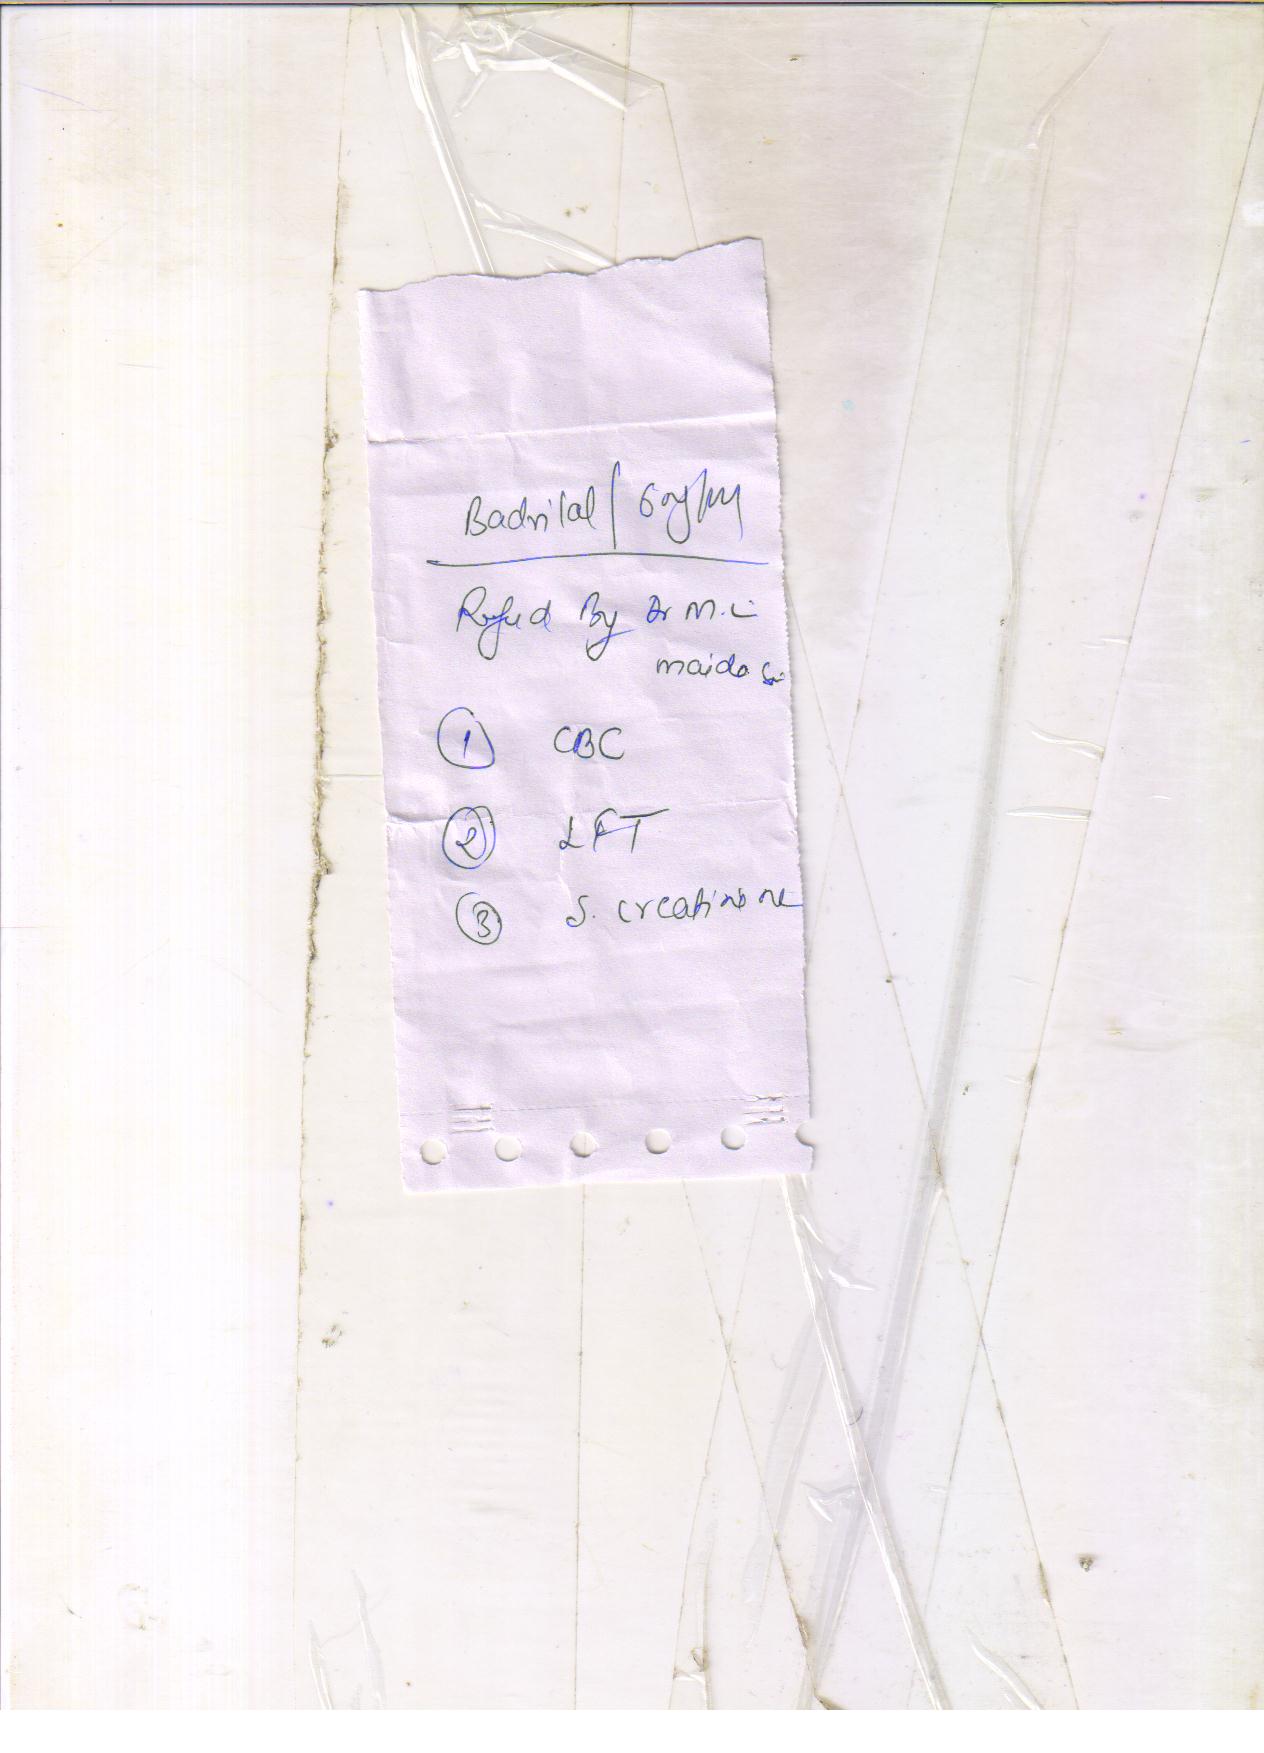 Badrilal / 60y/M
Refed By Dr M.L
① CBC
② LFT
③ S. creatinine